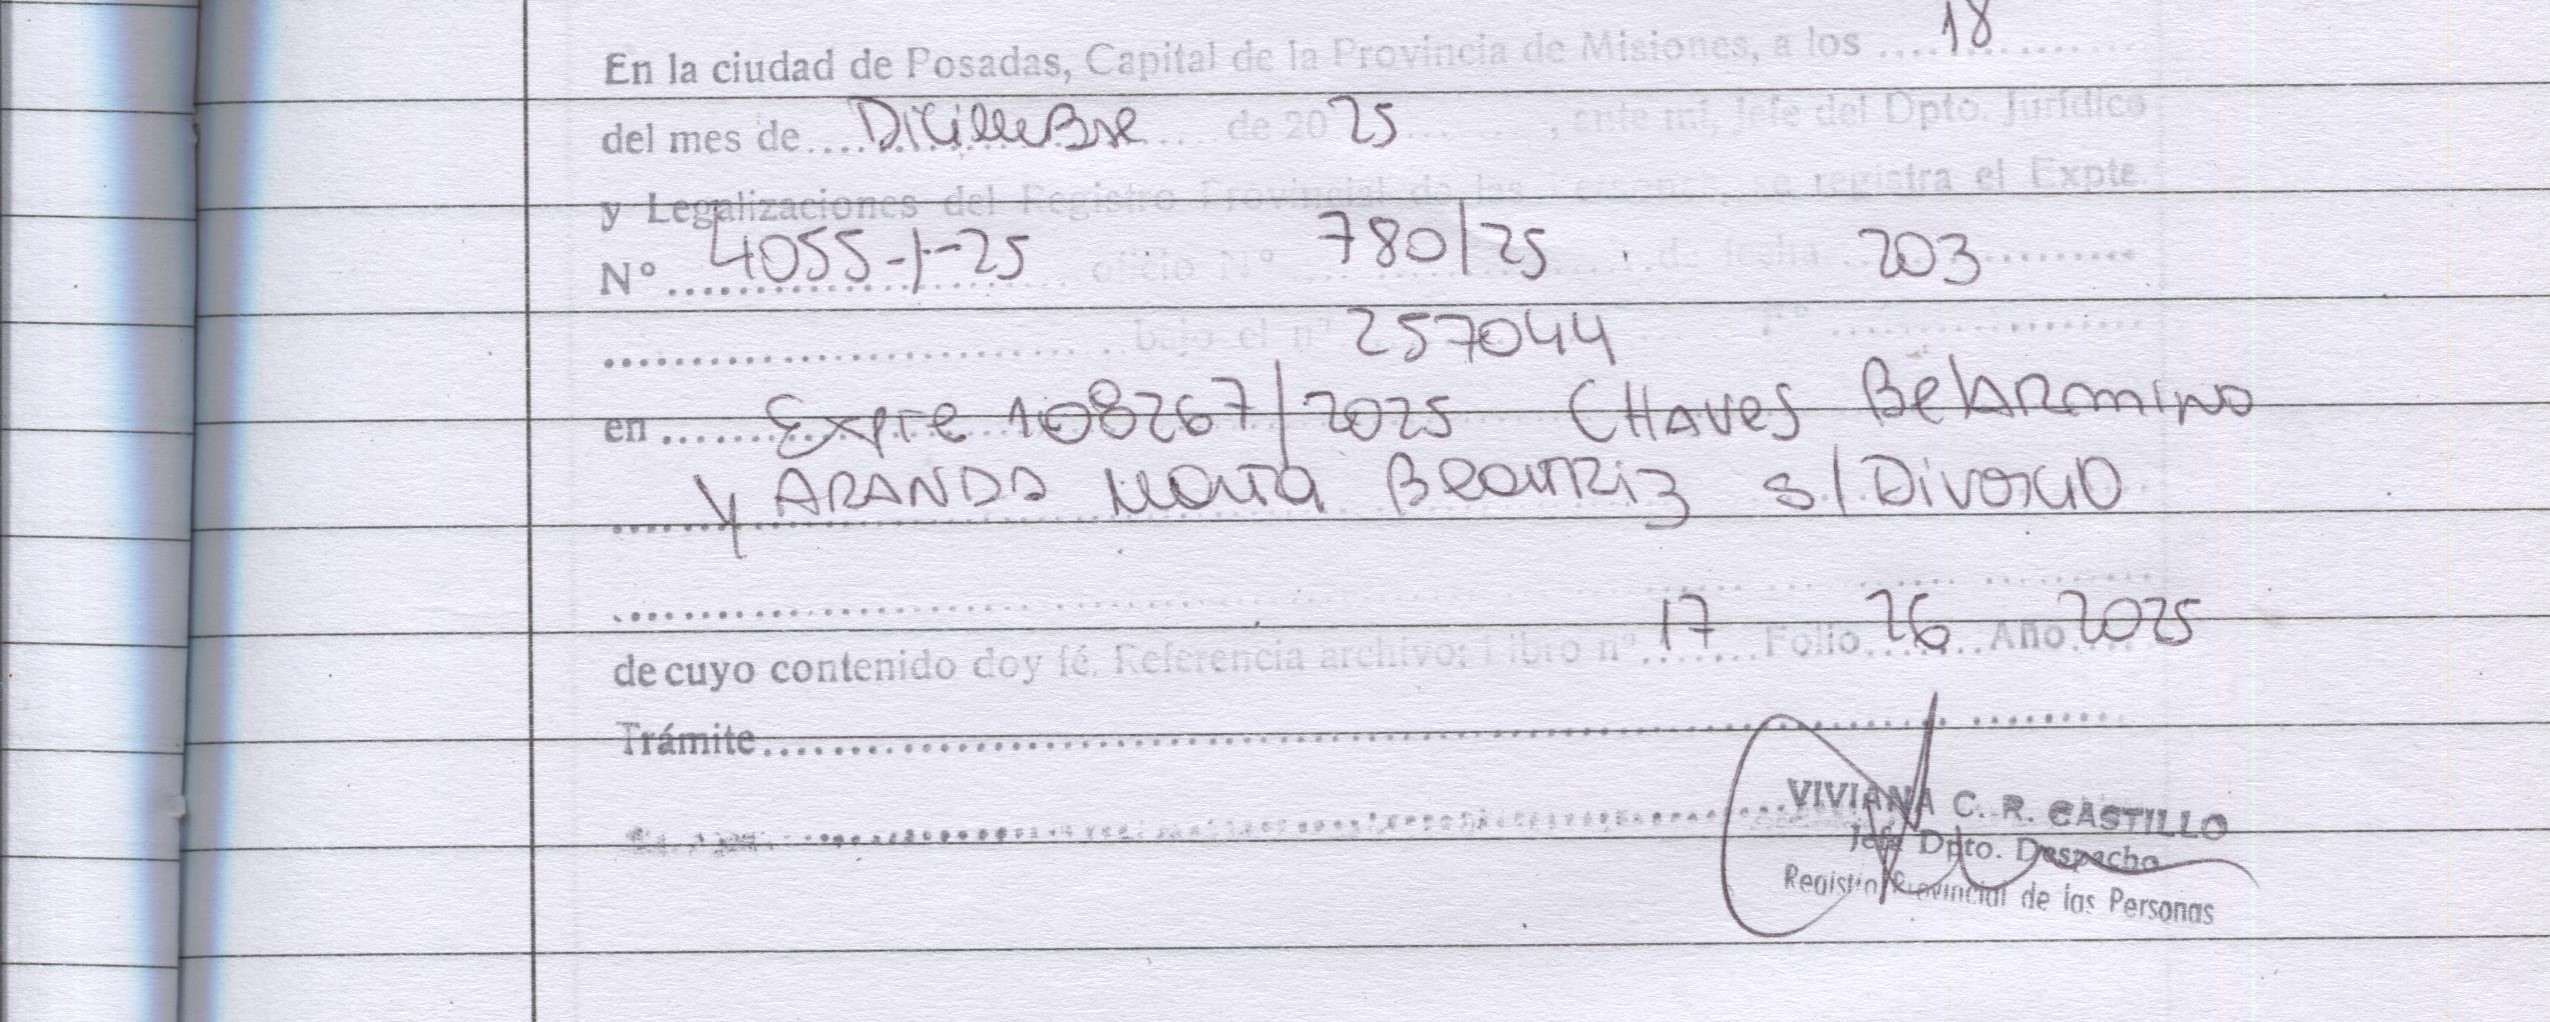 En la ciudad de Posadas, Capital de la Provincia de Misiones, a los .... 18 ............
del mes de .... Diciembre .... de 20 25 ... , ante mi Jefe del Dpto. Jurídico
y Legalizaciones del Registro Provincial de las Personas, se registra el Expte.
N° .... 4055-1-25 .... oficio N° .... 780/25 .... de fecha .... 203 ........
........................ bajo el n° 257044 .... F° ................
en ...... Expte 108267/2025 CHAVES BELARMINO
Y ARANDA María BEATRIZ s/ Divorcio
........................
de cuyo contenido doy fé. Referencia archivo: Libro n° 17 Folio 26 Año 2025
Trámite........................
VIVIANA C. R. CASTILLO
Jefa Dpto. Despacho
Registro Provincial de las Personas